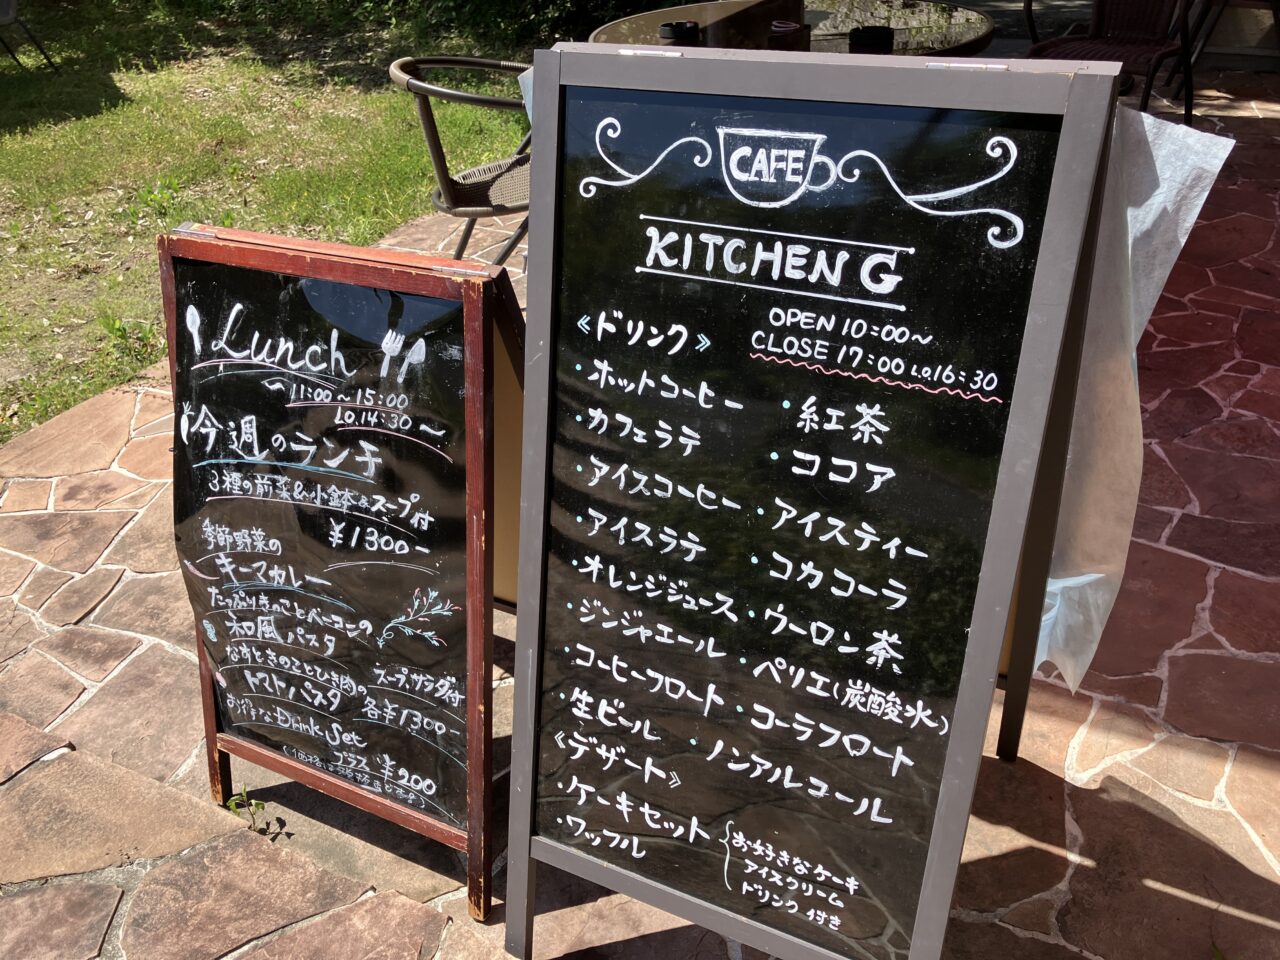 Lunch
~11:00~15:00
L.O.14:30~
今週のランチ
3種の前菜&小鉢&スープ付
¥1300-
季節野菜の
キーマカレー
たっぷりきのことベーコンの
和風パスタ
なすときのことひき肉の
トマトパスタ
スープ、サラダ付
各¥1300-
お得なDrink Set
プラス ¥200
CAFE
KITCHEN G
OPEN 10:00~
CLOSE 17:00 L.O.16:30
《ドリンク》
・ホットコーヒー ・紅茶
・カフェラテ ・ココア
・アイスコーヒー ・アイスティー
・アイスラテ ・コカコーラ
・オレンジジュース ・ウーロン茶
・ジンジャエール ・ペリエ(炭酸水)
・コーヒーフロート ・コーラフロート
・生ビール ・ノンアルコール
《デザート》
・ケーキセット
・ワッフル
お好きなケーキ
アイスクリーム
ドリンク付き